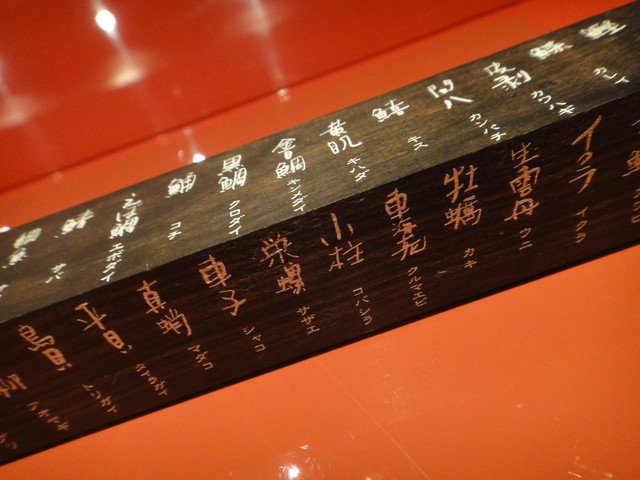 鰹
鰈
カレイ
皮剥
カワハギ
間八
カンパチ
鱚
キス
黄肌
キハダ
金目鯛
キンメダイ
黒鯛
クロダイ
鯒
コチ
えぼ鯛
エボダイ
鯖
サバ
イクラ
イクラ
生雲丹
ウニ
牡蠣
カキ
車海老
クルマエビ
小柱
コバシラ
栄螺
サザエ
車子
シャコ
真蛸
マダコ
平貝
タイラガイ
鳥貝
トリガイ